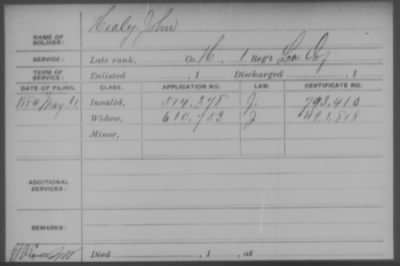 Healy, John
NAME OF SOLDIER:
SERVICE: Late rank, Co. H, 1 Reg't
TERM OF SERVICE: Enlisted , 1 Discharged , 1
DATE OF FILING. CLASS. APPLICATION NO. LAW. CERTIFICATE NO.
1884 May Invalid, 514,278 J. 793,410
Widow, 610,753 J 491,818
Minor,
ADDITIONAL SERVICES:
REMARKS:
Died , 1 , at